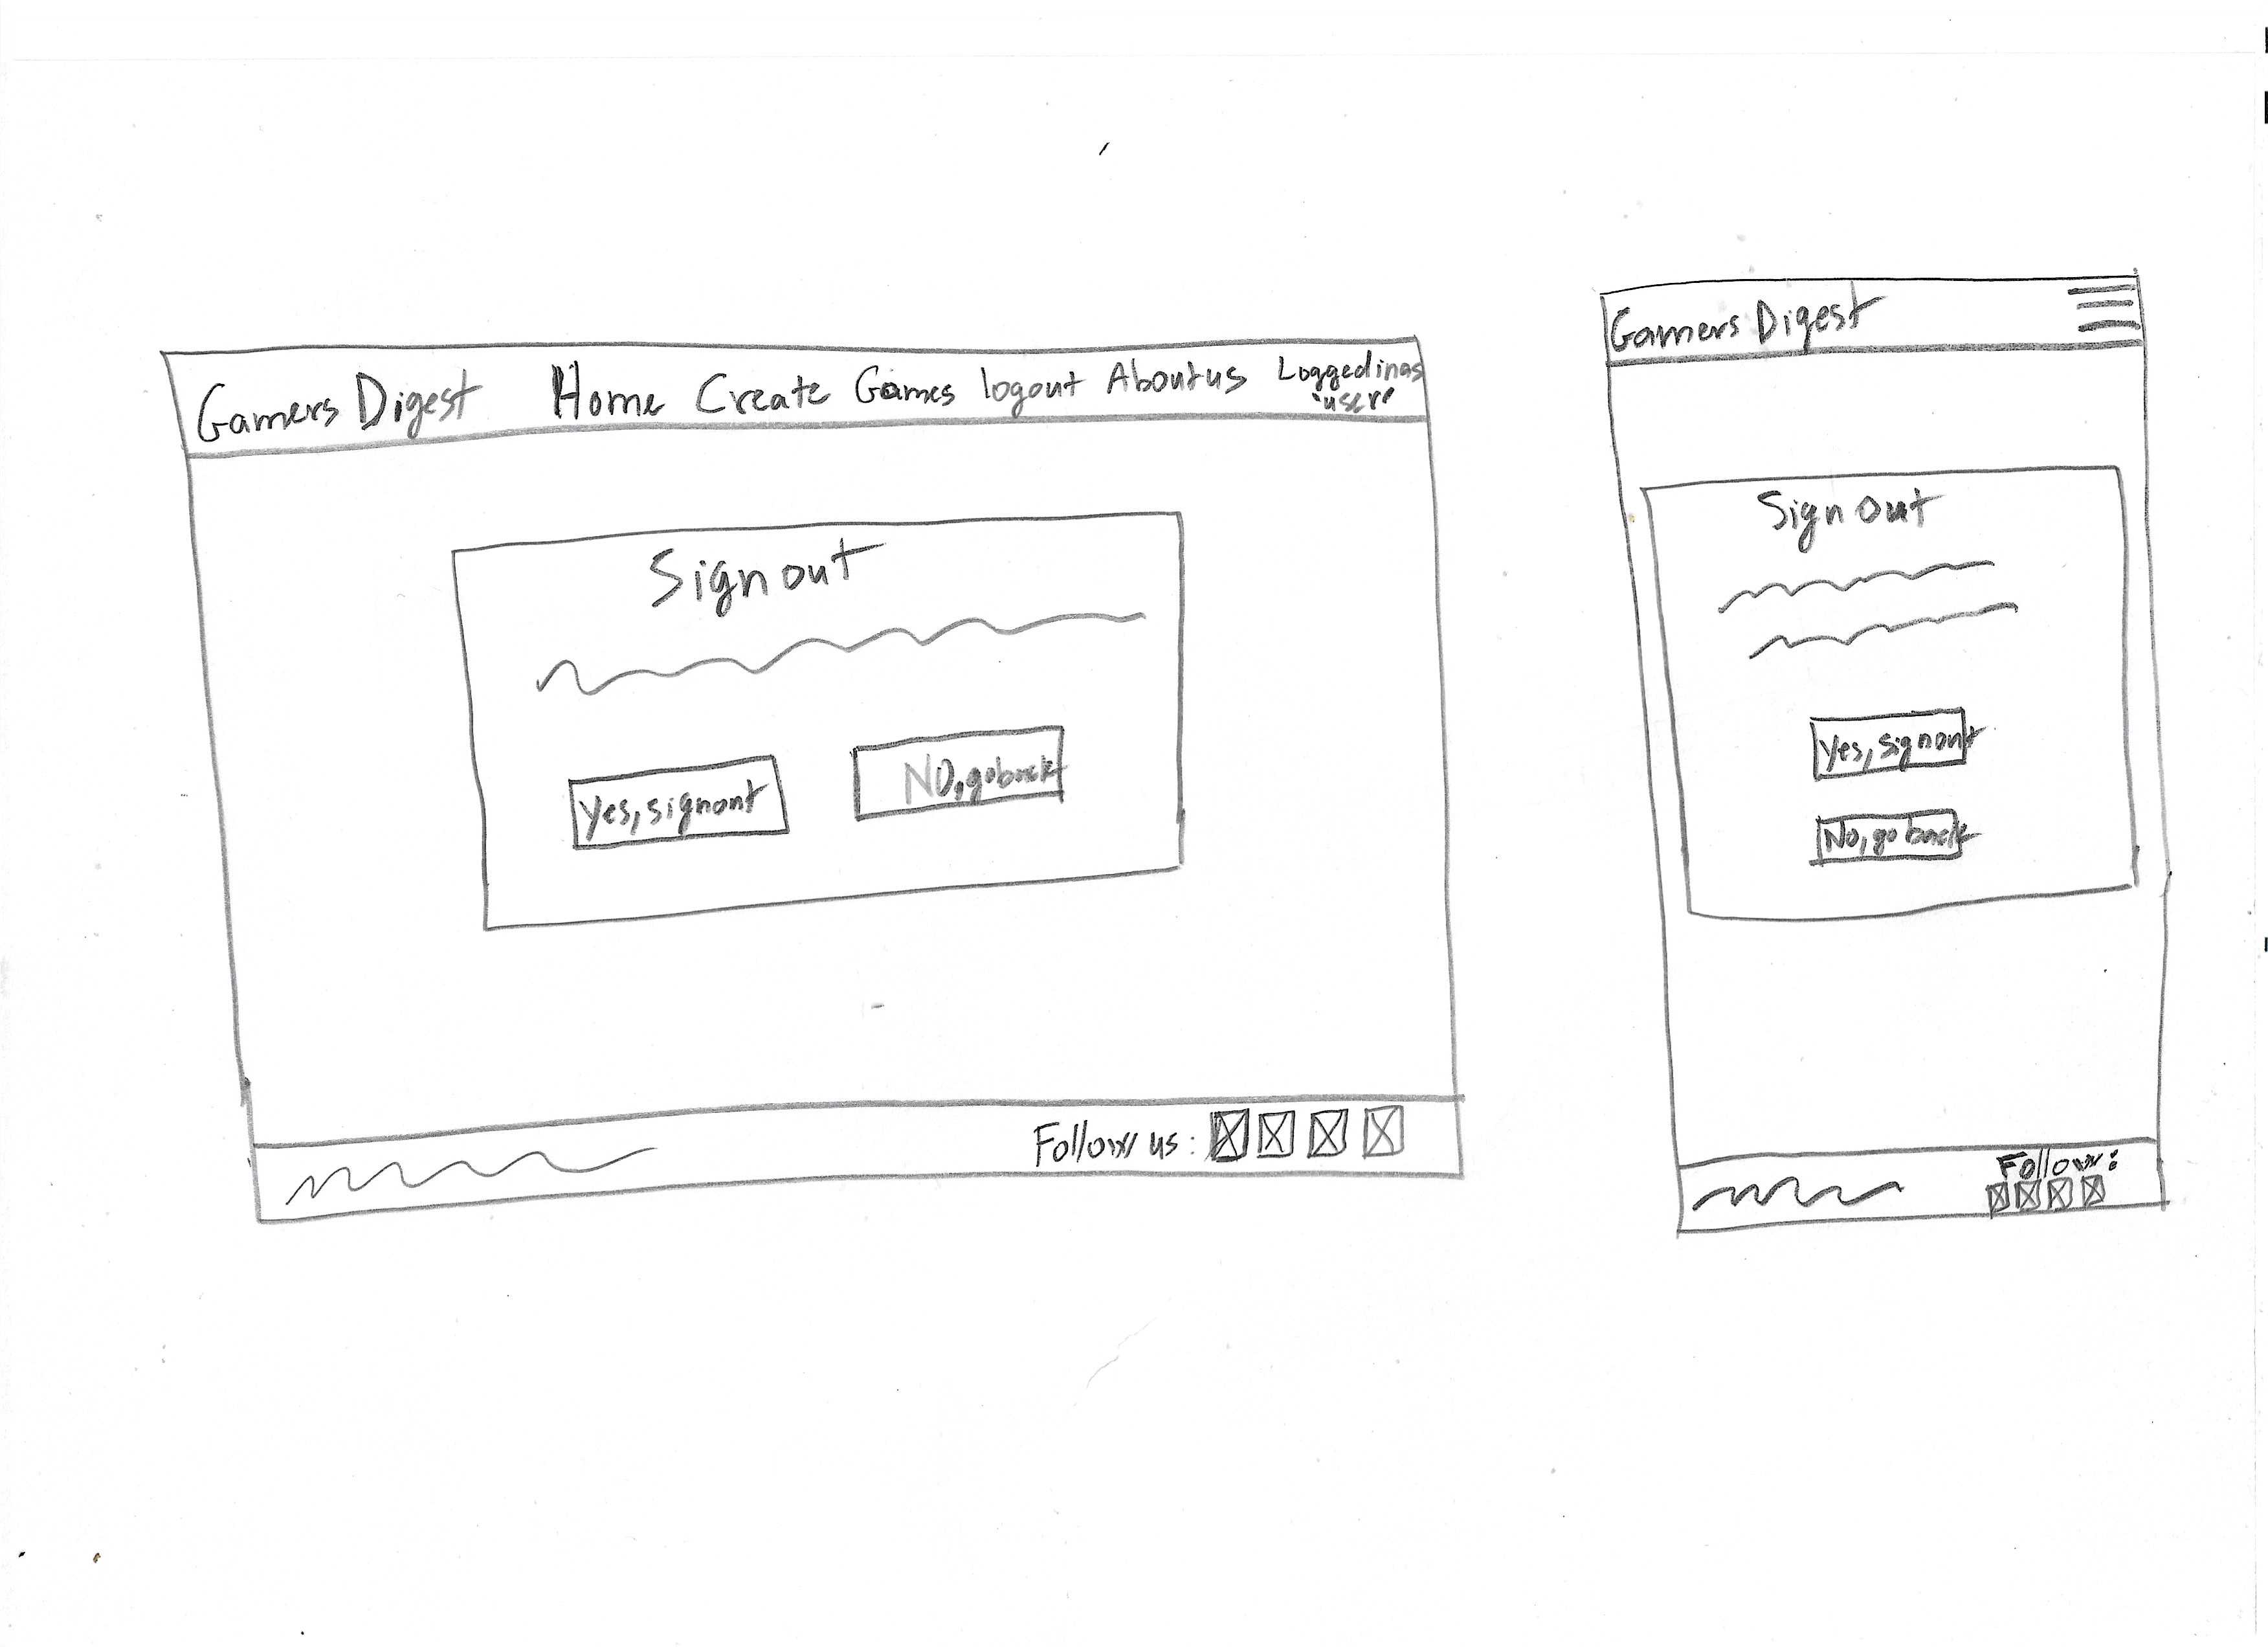 Gamers Digest Home Create Games logout About us Logged in as
"user"
Sign out
Yes, signout
NO, go back
Follow us:
Gamers Digest
Sign Out
Yes, signout
No, go back
Follow: